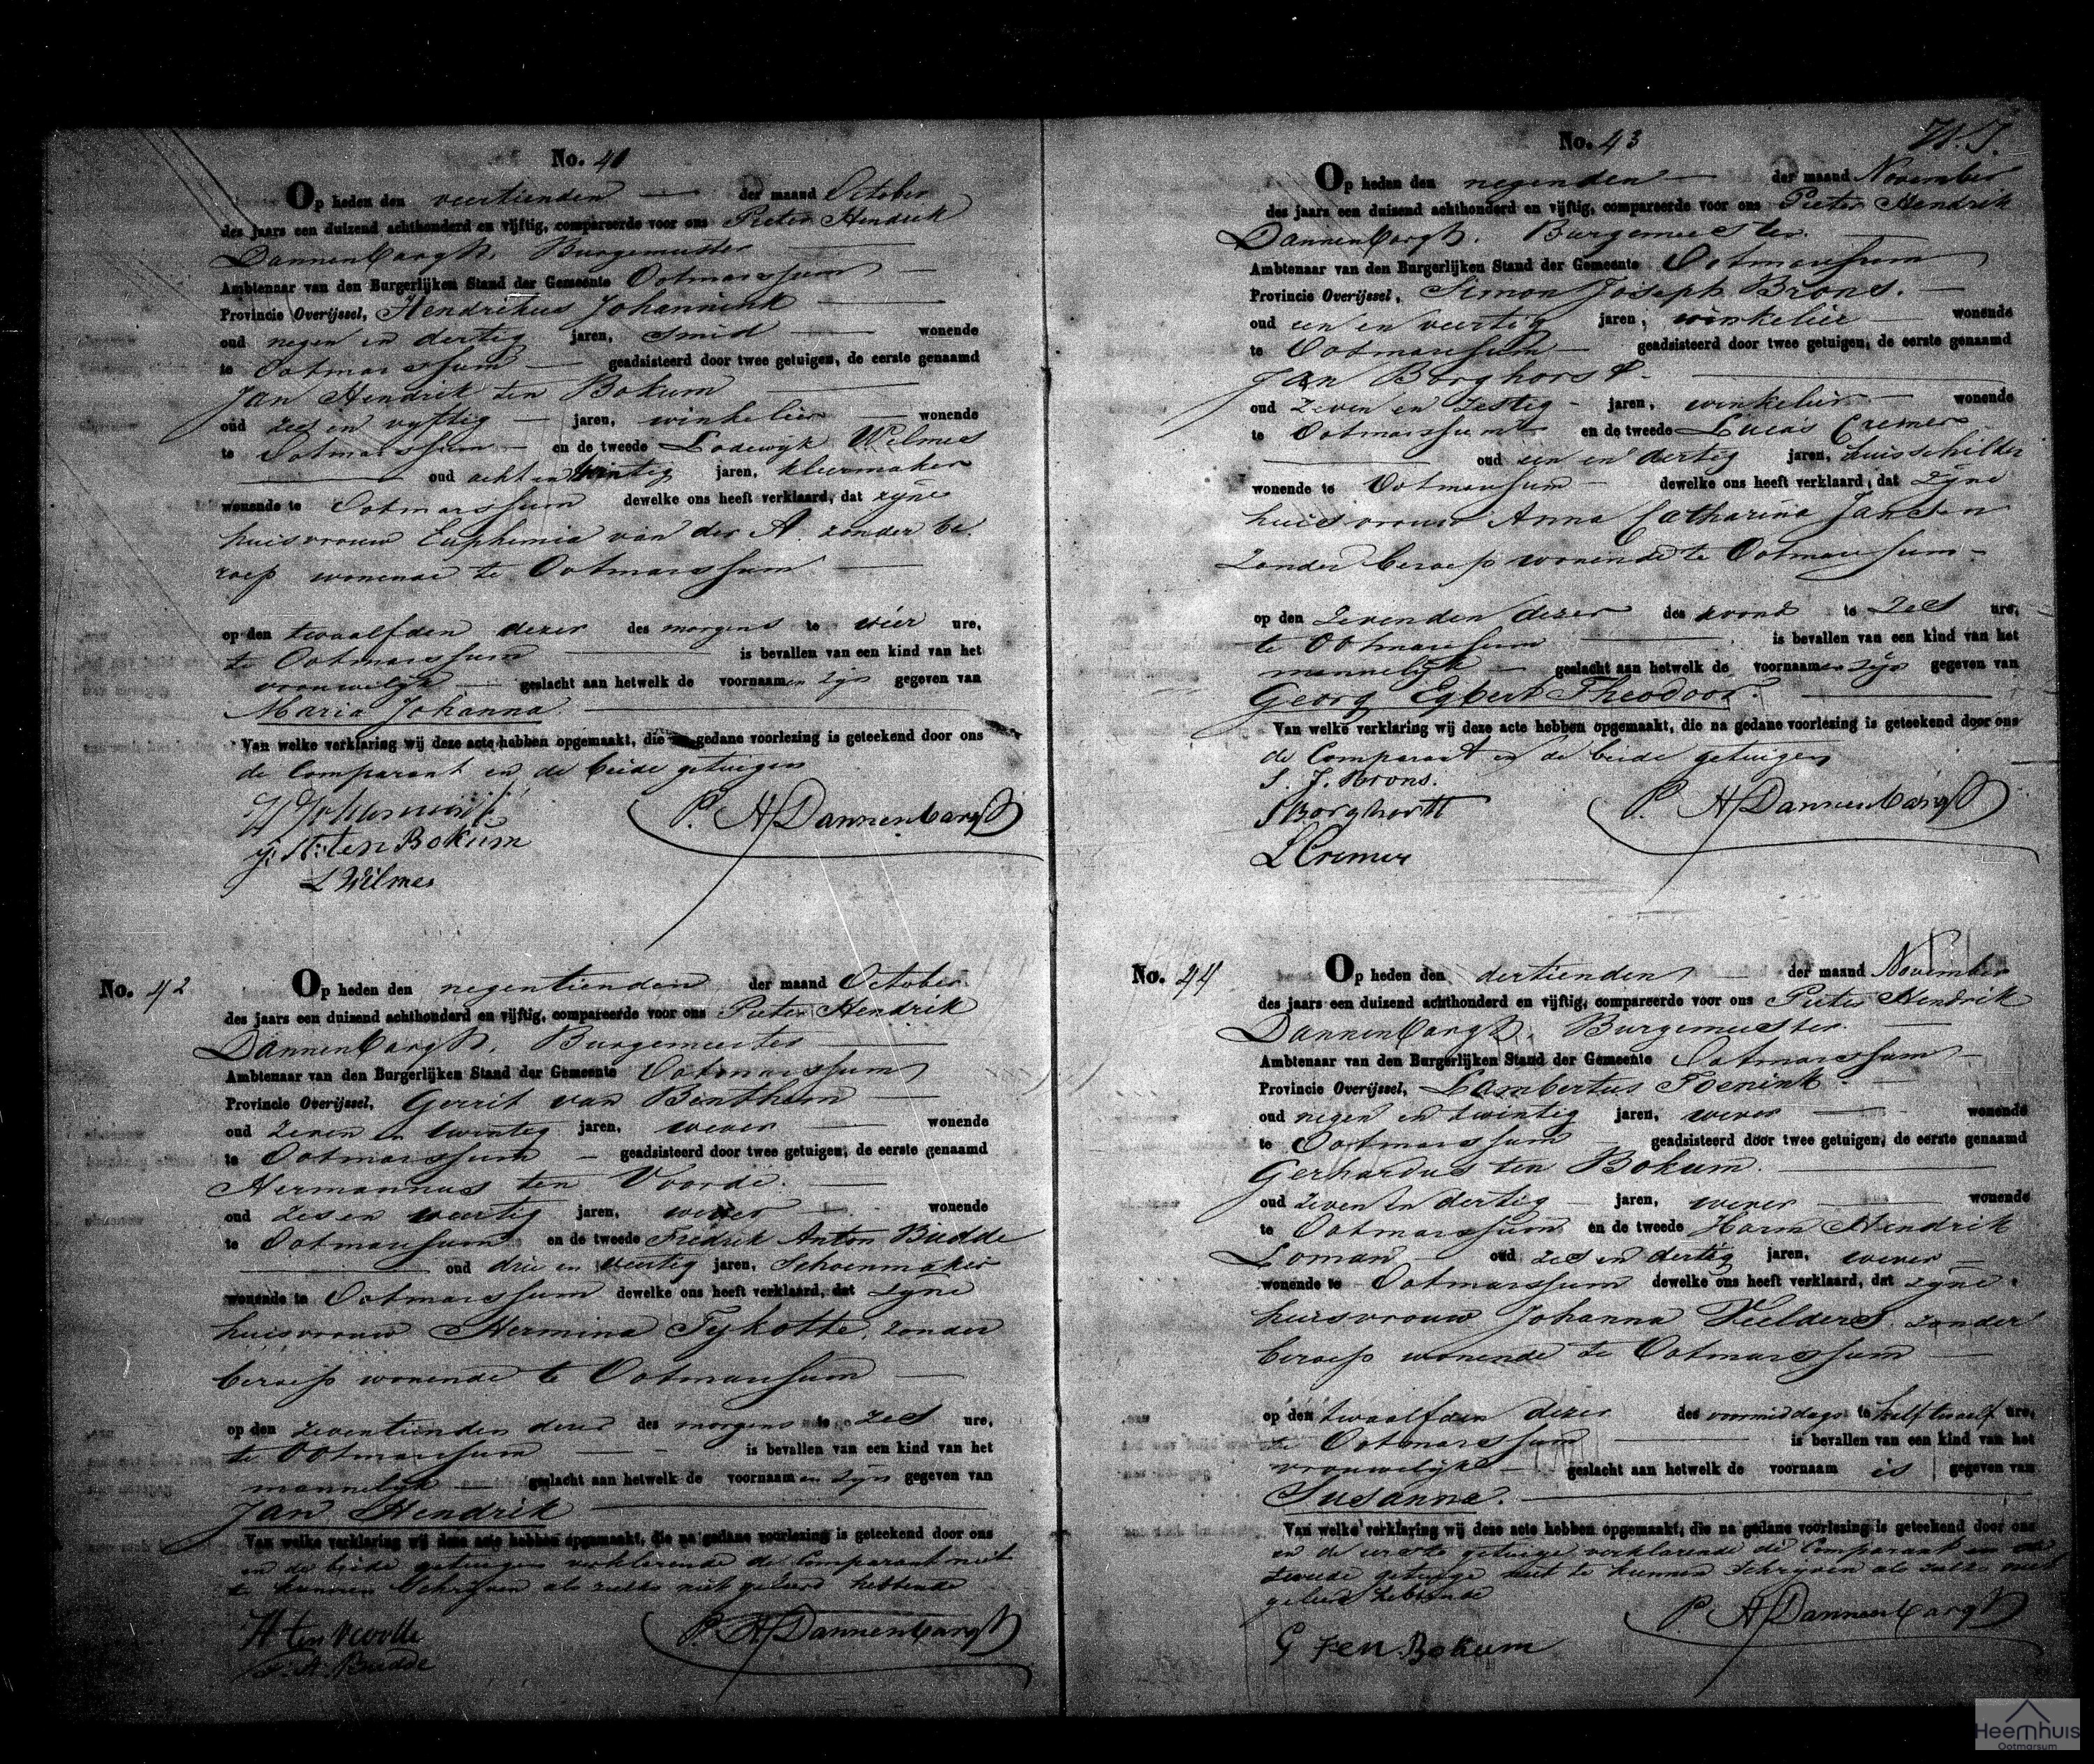 No. 41
Op heden den veertienden der maand October
des jaars een duizend achthonderd en vijftig, compareerde voor ons Pieter Hendrik
Dannenbargh, Burgemeester
Ambtenaar van den Burgerlijken Stand der Gemeente Ootmarssum
Provincie Overijssel, Hendrikus Johannink
oud negen en dertig jaren, smid wonende
te Ootmarssum geadsisteerd door twee getuigen, de eerste genaamd
Jan Hendrik ten Bokum
oud zes en vyftig jaren, winkelier wonende
te Ootmarssum en de tweede Lodewyk Wilmes
oud acht en twintig jaren, kleermaker
wonende te Ootmarssum dewelke ons heeft verklaard, dat zyne
huisvrouw Euphemia van der A. zonder be
roep wonende te Ootmarssum
op den twaalfden dezer des morgens te vier ure,
te Ootmarssum is bevallen van een kind van het
vrouwelyk geslacht aan hetwelk de voornaamen zyn gegeven van
Maria Johanna
Van welke verklaring wij deze acte hebben opgemaakt, die na gedane voorlezing is geteekend door ons
de Comparant en de beide getuigen
P. H Dannenbargh
J: H: ten Bokum
L Wilmes
No. 42
Op heden den negentienden der maand October
des jaars een duizend achthonderd en vijftig, compareerde voor ons Pieter Hendrik
Dannenbargh, Burgemeester
Ambtenaar van den Burgerlijken Stand der Gemeente Ootmarssum
Provincie Overijssel, Gerrit van Benthem
oud zeven en twintig jaren, wever wonende
te Ootmarssum geadsisteerd door twee getuigen, de eerste genaamd
Hermannus ten Voorde.
oud zes en veertig jaren, wever wonende
te Ootmarssum en de tweede Fredrik Anton Budde
oud drie en veertig jaren, Schoenmaker
wonende te Ootmarssum dewelke ons heeft verklaard, dat zyne
huisvrouw Hermina Tykotte, zonder
beroep wonende te Ootmarssum
op den zeventienden dezer des morgens te zes ure,
te Ootmarssum is bevallen van een kind van het
mannelyk geslacht aan hetwelk de voornaamen zyn gegeven van
Jan Hendrik
Van welke verklaring wij deze acte hebben opgemaakt, die na gedane voorlezing is geteekend door ons
en de beide getuigen verklarende de Comparant niet
te kunnen Schryven als zulks niet geleerd hebbende
P. H Dannenbargh
H ten Voorde
F. A. Budde
No. 43
Op heden den negenden der maand November
des jaars een duizend achthonderd en vijftig, compareerde voor ons Pieter Hendrik
Dannenbargh, Burgemeester.
Ambtenaar van den Burgerlijken Stand der Gemeente Ootmarssum
Provincie Overijssel, Simon Joseph Brons.
oud een en veertig jaren, winkelier wonende
te Ootmarssum geadsisteerd door twee getuigen, de eerste genaamd
Jan Borghorst
oud zeven en zestig jaren, winkelier wonende
te Ootmarssum en de tweede Lucas Cremer
oud een en dertig jaren, huisschilder
wonende te Ootmarssum dewelke ons heeft verklaard, dat zyne
huisvrouw Anna Catharina Jansen
zonder beroep wonende te Ootmarssum
op den zevenden dezer des avonds te zes ure,
te Ootmarssum is bevallen van een kind van het
mannelyk geslacht aan hetwelk de voornaamen zyn gegeven van
Georg Egbert Theodoor.
Van welke verklaring wij deze acte hebben opgemaakt, die na gedane voorlezing is geteekend door ons
de Comparant en de beide getuigen
S. J. Brons.
P. H Dannenbargh
J Borghorst
L Cremer
No. 44
Op heden den dertienden der maand November
des jaars een duizend achthonderd en vijftig, compareerde voor ons Pieter Hendrik
Dannenbargh, Burgemeester.
Ambtenaar van den Burgerlijken Stand der Gemeente Ootmarssum
Provincie Overijssel, Lambertus Toenink
oud negen en twintig jaren, wever wonende
te Ootmarssum geadsisteerd door twee getuigen, de eerste genaamd
Gerhardus ten Bokum.
oud zeven en dertig jaren, wever wonende
te Ootmarssum en de tweede Harm Hendrik
Loman oud zes en dertig jaren, wever
wonende te Ootmarssum dewelke ons heeft verklaard, dat zyne
huisvrouw Johanna Veelders zonder
beroep wonende te Ootmarssum
op den twaalfden dezer des voormiddags te half twaalf ure,
te Ootmarssum is bevallen van een kind van het
vrouwelyk geslacht aan hetwelk de voornaam is gegeven van
Susanna.
Van welke verklaring wij deze acte hebben opgemaakt, die na gedane voorlezing is geteekend door ons
en de eerste getuige verklarende de Comparant en de
tweede getuige niet te kunnen Schryven als zulks niet
geleerd hebbende
P H Dannenbargh
G ten Bokum
Heemhuis
Ootmarsum